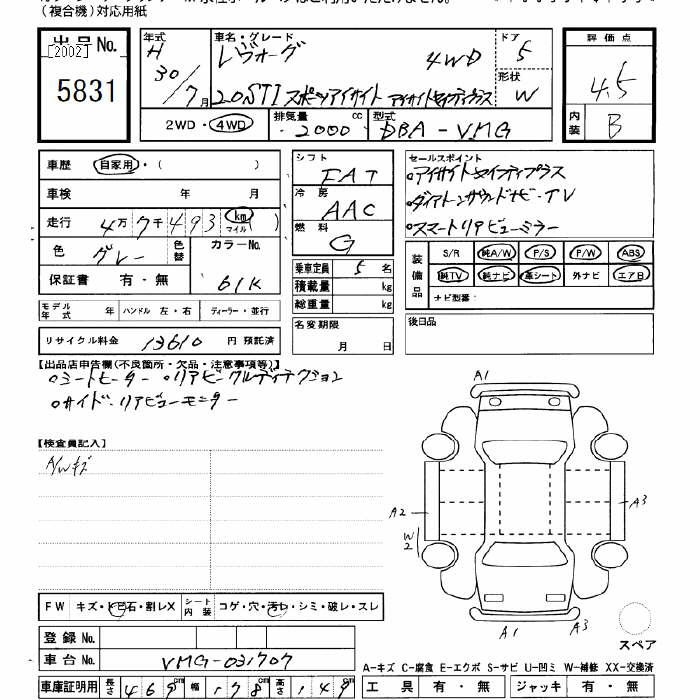 (複合機)対応用紙
出品No.
[2002]
5831
年式
H
30/7月
車名・グレード
レヴォーグ 4WD
2.0STI スポーツアイサイト アイサイトセイフティプラス
ドア
5
形状
W
2WD・4WD
排気量 cc
2000
型式
DBA-VMG
評価点
4.5
内装
B
車歴 自家用・( )
車検 年 月
走行 4万7千493 km マイル ( )
色 グレー 色替 カラーNo.
61K
保証書 有・無
モデル年式 年 ハンドル 左・右 ディーラー・並行
リサイクル料金 13610 円 預託済
シフト
FAT
冷房
AAC
燃料
G
乗車定員 5名
積載量 kg
総重量 kg
名変期限
月 日
セールスポイント
○アイサイトセイフティプラス
○ダイアトーンサウンドナビ・TV
○スマートリアビューミラー
装備品
S/R 純A/W P/S P/W ABS
純TV 純ナビ 革シート 外ナビ エアB
ナビ型番:
後日品
【出品店申告欄(不良箇所・欠品・注意事項等)】
○シートヒーター ○リアビークルディテクション
○サイド・リアビューモニター
【検査員記入】
A/Wキズ
A1
A2
W2
A3
A1
A3
スペア
FW キズ・トビ石・割レX シート内装 コゲ・穴・汚レ・シミ・破レ・スレ
登録No.
車台No. VMG-031707
車庫証明用 長さ 469 幅 178 高さ 149
A-キズ C-腐食 E-エクボ S-サビ U-凹ミ W-補修 XX-交換済
工具 有・無 ジャッキ 有・無